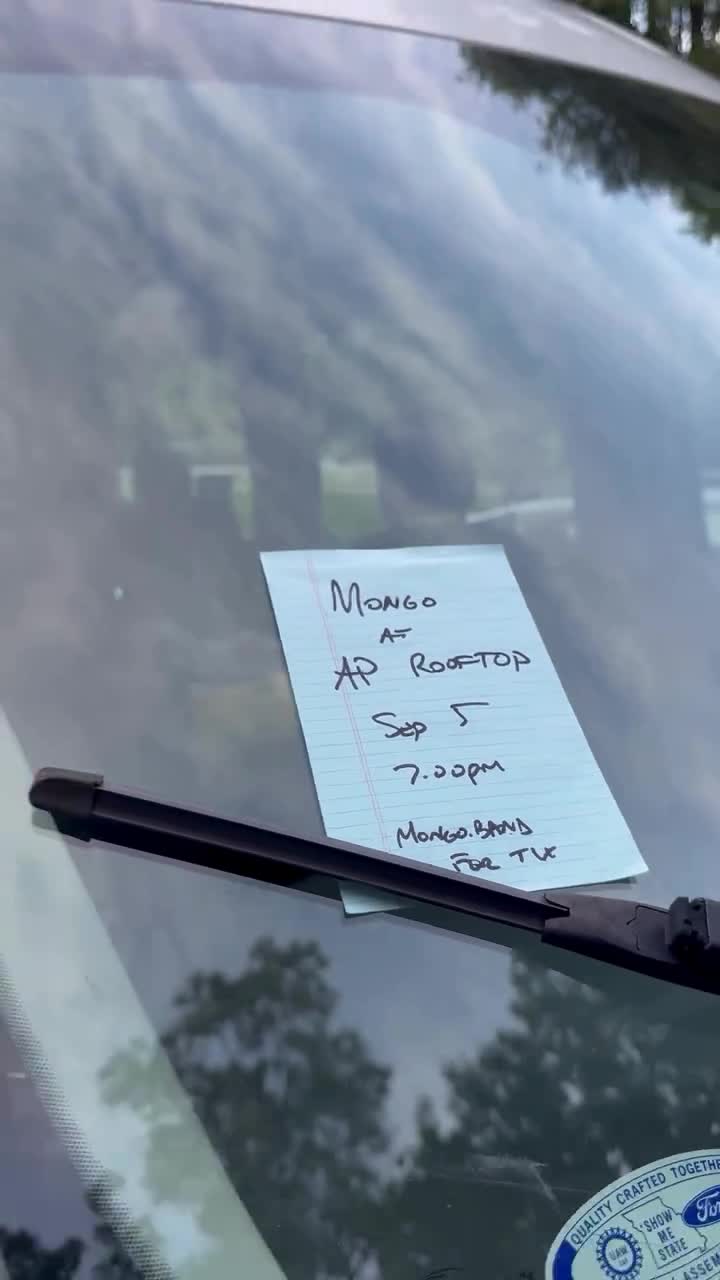 MONGO
AT
AP ROOFTOP
Sep 5
7.00pm
MONGO.BAND
FOR TIX
QUALITY CRAFTED TOGETHER
"SHOW
ME
STATE"
UAW
Ford